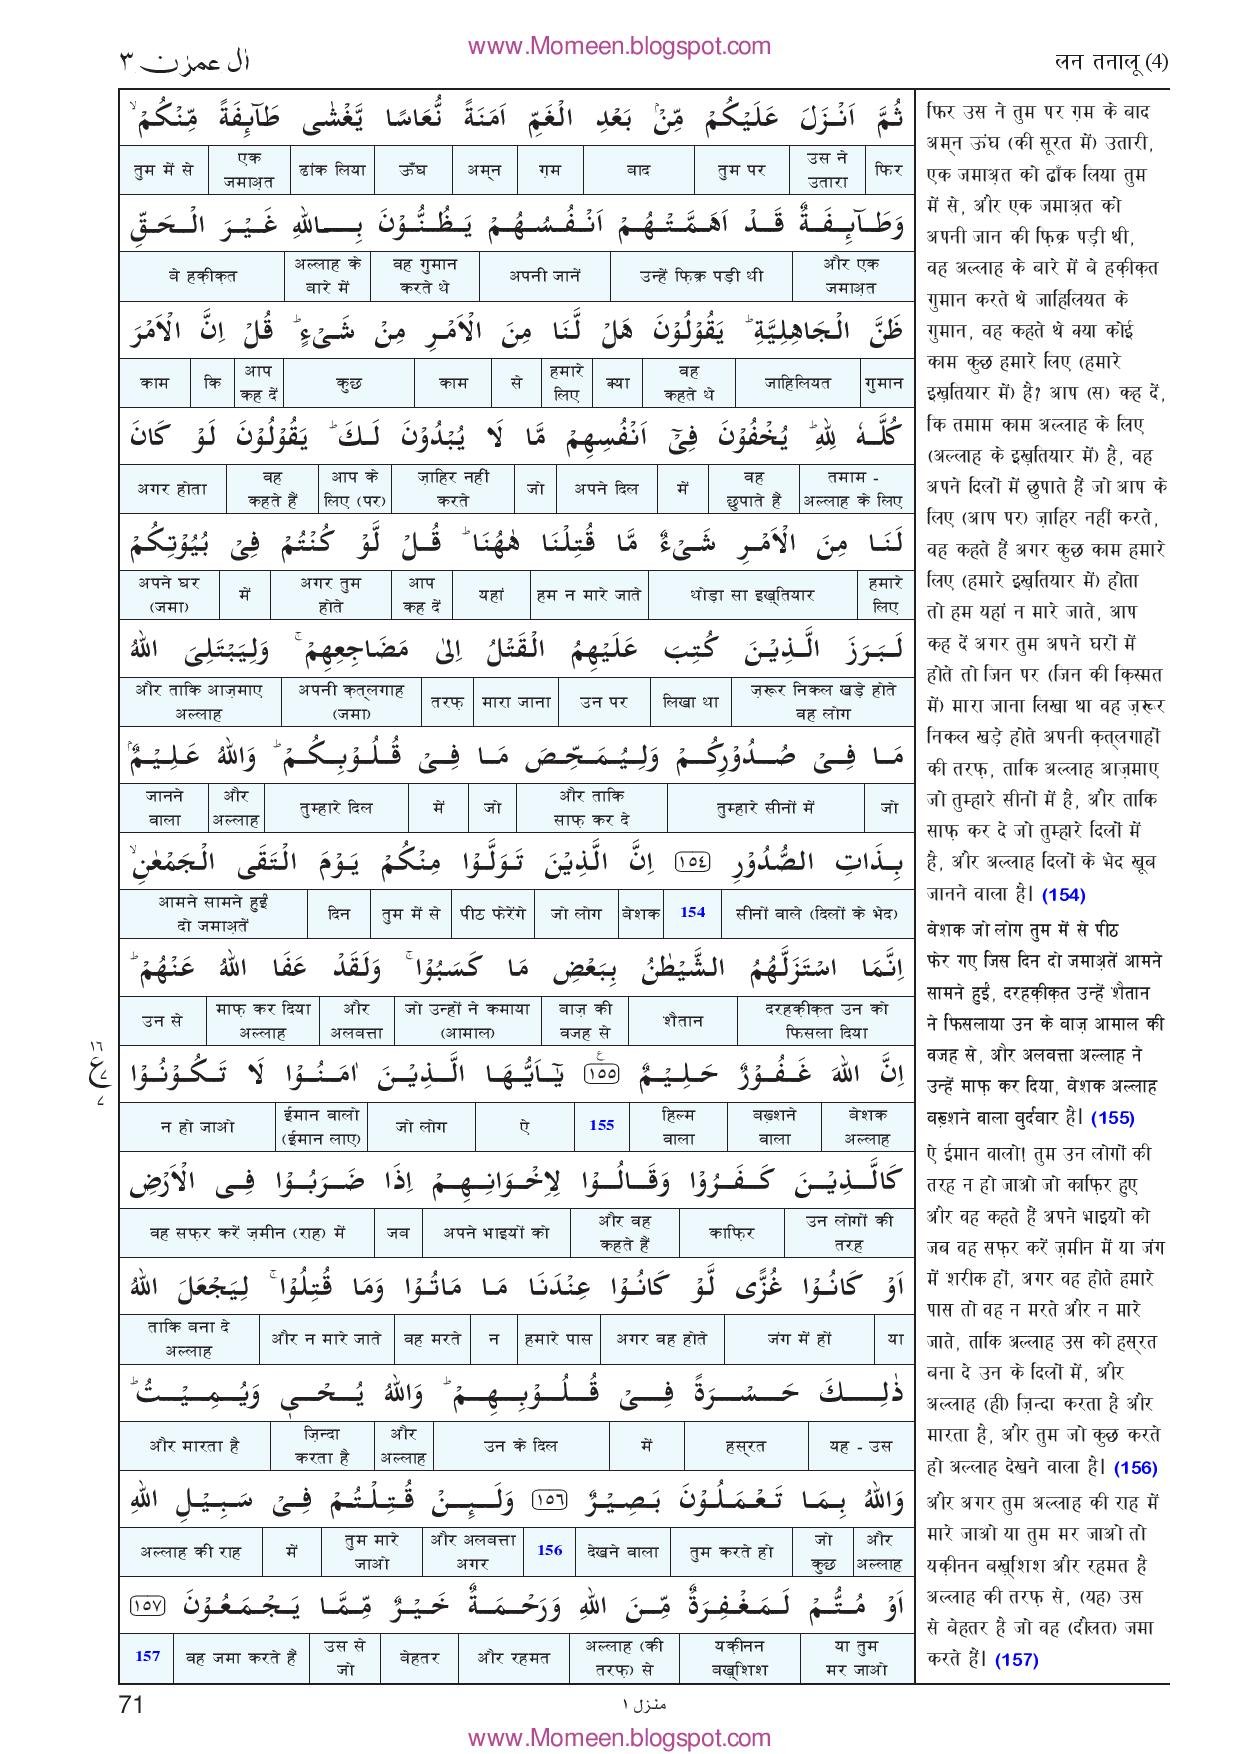 www.Momeen.blogspot.com
اٰل عمرٰن ٣
लन तनालू (4)
ثُمَّ اَنْزَلَ عَلَيْكُمْ مِّنْۢ بَعْدِ الْغَمِّ اَمَنَةً نُّعَاسًا يَّغْشٰى طَآئِفَةً مِّنْكُمْ ۙ
फिर | उस ने उतारा | तुम पर | बाद | ग़म | अम्न | ऊँघ | ढांक लिया | एक जमाअ़त | तुम में से
وَطَآئِفَةٌ قَدْ اَهَمَّتْهُمْ اَنْفُسُهُمْ يَظُنُّوْنَ بِاللّٰهِ غَيْرَ الْحَقِّ
और एक जमाअ़त | उन्हें फ़िक्र पड़ी थी | अपनी जानें | वह गुमान करते थे | अल्लाह के बारे में | बे हक़ीक़त
ظَنَّ الْجَاهِلِيَّةِ ؕ يَقُوْلُوْنَ هَلْ لَّنَا مِنَ الْاَمْرِ مِنْ شَىْءٍ ؕ قُلْ اِنَّ الْاَمْرَ
गुमान | जाहिलियत | वह कहते थे | क्या | हमारे लिए | से | काम | कुछ | आप कह दें | कि | काम
كُلَّهٗ لِلّٰهِ ؕ يُخْفُوْنَ فِىْۤ اَنْفُسِهِمْ مَّا لَا يُبْدُوْنَ لَكَ ؕ يَقُوْلُوْنَ لَوْ كَانَ
तमाम - अल्लाह के लिए | वह छुपाते हैं | में | अपने दिल | जो | ज़ाहिर नहीं करते | आप के लिए (पर) | वह कहते हैं | अगर होता
لَنَا مِنَ الْاَمْرِ شَىْءٌ مَّا قُتِلْنَا هٰهُنَا ؕ قُلْ لَّوْ كُنْتُمْ فِىْ بُيُوْتِكُمْ
हमारे लिए | थोड़ा सा इख़्तियार | हम न मारे जाते | यहां | आप कह दें | अगर तुम होते | में | अपने घर (जमा)
لَبَرَزَ الَّذِيْنَ كُتِبَ عَلَيْهِمُ الْقَتْلُ اِلٰى مَضَاجِعِهِمْ ۚ وَلِيَبْتَلِىَ اللّٰهُ
ज़रूर निकल खड़े होते वह लोग | लिखा था | उन पर | मारा जाना | तरफ़ | अपनी क़त्लगाह (जमा) | और ताकि आज़माए अल्लाह
مَا فِىْ صُدُوْرِكُمْ وَلِيُمَحِّصَ مَا فِىْ قُلُوْبِكُمْ ؕ وَاللّٰهُ عَلِيْمٌۢ
जो | तुम्हारे सीनों में | और ताकि साफ़ कर दे | जो | में | तुम्हारे दिल | और अल्लाह | जानने वाला
بِذَاتِ الصُّدُوْرِ ١٥٤ اِنَّ الَّذِيْنَ تَوَلَّوْا مِنْكُمْ يَوْمَ الْتَقَى الْجَمْعٰنِ ۙ
सीनों वाले (दिलों के भेद) | 154 | बेशक | जो लोग | पीठ फेरेंगे | तुम में से | दिन | आमने सामने हुईं दो जमाअ़तें
اِنَّمَا اسْتَزَلَّهُمُ الشَّيْطٰنُ بِبَعْضِ مَا كَسَبُوْا ۚ وَلَقَدْ عَفَا اللّٰهُ عَنْهُمْ ؕ
दरहक़ीक़त उन को फिसला दिया | शैतान | बाज़ की वजह से | जो उन्हों ने कमाया (आमाल) | और अलबत्ता | माफ़ कर दिया अल्लाह | उन से
اِنَّ اللّٰهَ غَفُوْرٌ حَلِيْمٌ ١٥٥ يٰۤاَيُّهَا الَّذِيْنَ اٰمَنُوْا لَا تَكُوْنُوْا
١٦ ع ٧ ٧
बेशक अल्लाह | बख़्शने वाला | हिल्म वाला | 155 | ऐ | जो लोग | ईमान वालो (ईमान लाए) | न हो जाओ
كَالَّذِيْنَ كَفَرُوْا وَقَالُوْا لِاِخْوَانِهِمْ اِذَا ضَرَبُوْا فِى الْاَرْضِ
उन लोगों की तरह | काफ़िर | और वह कहते हैं | अपने भाइयों को | जब | वह सफ़र करें ज़मीन (राह) में
اَوْ كَانُوْا غُزًّى لَّوْ كَانُوْا عِنْدَنَا مَا مَاتُوْا وَمَا قُتِلُوْا ۚ لِيَجْعَلَ اللّٰهُ
या | जंग में हों | अगर वह होते | हमारे पास | न | वह मरते | और न मारे जाते | ताकि बना दे अल्लाह
ذٰلِكَ حَسْرَةً فِىْ قُلُوْبِهِمْ ؕ وَاللّٰهُ يُحْىٖ وَيُمِيْتُ ؕ
यह - उस | हस्रत | में | उन के दिल | और अल्लाह | ज़िन्दा करता है | और मारता है
وَاللّٰهُ بِمَا تَعْمَلُوْنَ بَصِيْرٌ ١٥٦ وَلَئِنْ قُتِلْتُمْ فِىْ سَبِيْلِ اللّٰهِ
और अल्लाह | जो कुछ | तुम करते हो | देखने वाला | 156 | और अलबत्ता अगर | तुम मारे जाओ | में | अल्लाह की राह
اَوْ مُتُّمْ لَمَغْفِرَةٌ مِّنَ اللّٰهِ وَرَحْمَةٌ خَيْرٌ مِّمَّا يَجْمَعُوْنَ ١٥٧
या तुम मर जाओ | यक़ीनन बख़्शिश | अल्लाह (की तरफ़) से | और रहमत | बेहतर | उस से जो | वह जमा करते हैं | 157
फिर उस ने तुम पर ग़म के बाद
अम्न ऊंघ (की सूरत में) उतारी,
एक जमाअ़त को ढाँक लिया तुम
में से, और एक जमाअ़त को
अपनी जान की फ़िक्र पड़ी थी,
वह अल्लाह के बारे में बे हक़ीक़त
गुमान करते थे जाहिलियत के
गुमान, वह कहते थे क्या कोई
काम कुछ हमारे लिए (हमारे
इख़तियार में) है? आप (स) कह दें,
कि तमाम काम अल्लाह के लिए
(अल्लाह के इख़तियार में) है, वह
अपने दिलों में छुपाते हैं जो आप के
लिए (आप पर) ज़ाहिर नहीं करते,
वह कहते हैं अगर कुछ काम हमारे
लिए (हमारे इख़तियार में) होता
तो हम यहां न मारे जाते, आप
कह दें अगर तुम अपने घरों में
होते तो जिन पर (जिन की क़िस्मत
में) मारा जाना लिखा था वह ज़रूर
निकल खड़े होते अपनी क़त्लगाहों
की तरफ़, ताकि अल्लाह आज़माए
जो तुम्हारे सीनों में है, और ताकि
साफ़ कर दे जो तुम्हारे दिलों में
है, और अल्लाह दिलों के भेद खूब
जानने वाला है। (154)
बेशक जो लोग तुम में से पीठ
फेर गए जिस दिन दो जमाअ़तें आमने
सामने हुईं, दरहक़ीक़त उन्हें शैतान
ने फिसलाया उन के बाज़ आमाल की
वजह से, और अलबत्ता अल्लाह ने
उन्हें माफ़ कर दिया, बेशक अल्लाह
बख़्शने वाला बुर्दबार है। (155)
ऐ ईमान वालो! तुम उन लोगों की
तरह न हो जाओ जो काफ़िर हुए
और वह कहते हैं अपने भाइयों को
जब वह सफ़र करें ज़मीन में या जंग
में शरीक हों, अगर वह होते हमारे
पास तो वह न मरते और न मारे
जाते, ताकि अल्लाह उस को हस्रत
बना दे उन के दिलों में, और
अल्लाह (ही) ज़िन्दा करता है और
मारता है, और तुम जो कुछ करते
हो अल्लाह देखने वाला है। (156)
और अगर तुम अल्लाह की राह में
मारे जाओ या तुम मर जाओ तो
यक़ीनन बख़्शिश और रहमत है
अल्लाह की तरफ़ से, (यह) उस
से बेहतर है जो वह (दौलत) जमा
करते हैं। (157)
71
منزل ١
www.Momeen.blogspot.com